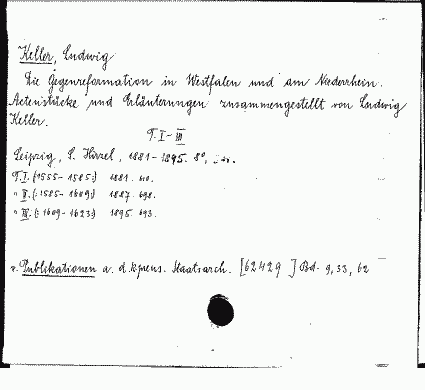 Keller, Ludwig
Die Gegenreformation in Westfalen und am Niederrhein.
Actenstücke und Erläuterungen zusammengestellt von Ludwig
Keller.
T. I-III
Leipzig, S. Hirzel, 1881-1895. 8°,
T. I. (1555-1585:) 1881.
" II. (: 1585-1609:) 1887. 698.
" III. (: 1609-1623:) 1895. 693.
v. Publikationen a. d. k. preus. Staatsarch. [62429 ] Bd. 9, 33, 62